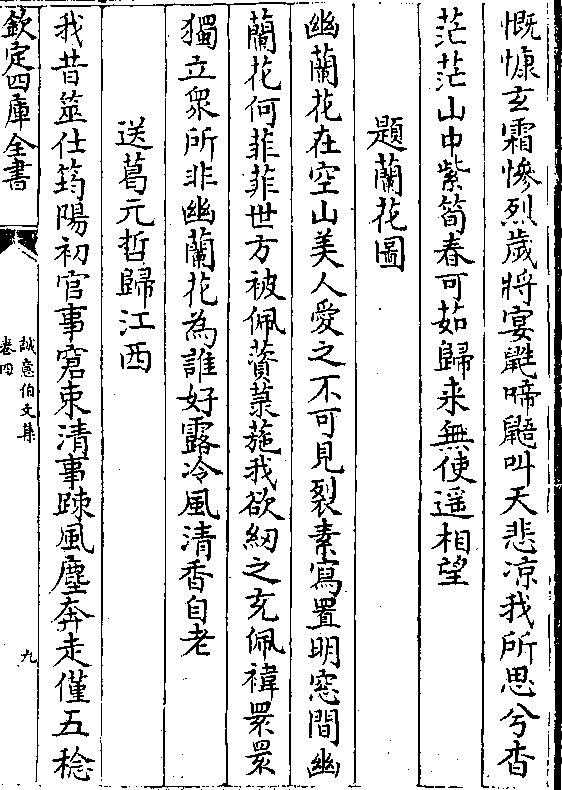 慨慷玄霜慘烈歲將宴鼪啼鼯叫天悲凉我所思兮杳
茫茫山中紫筍春可茹歸来無使遥相望
題蘭花圖
幽蘭花在空山美人愛之不可見裂素寫置明窓間幽
蘭花何菲菲世方被佩薋菉葹我欲紉之充佩褘褭褭
獨立衆所非幽蘭花為誰好露冷風清香自老
送葛元哲歸江西
我昔筮仕筠陽初官事窘束清事踈風塵奔走僅五稔
欽定四庫全書
誠意伯文集
卷四
九